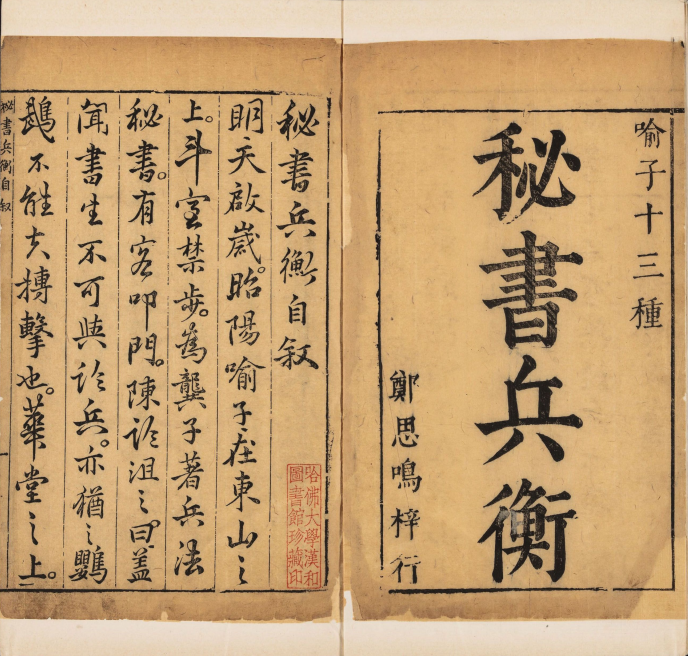 喻子十三種
秘書兵衡
鄭思鳴梓行
秘書兵衡自叙
明天啟歲。昭陽喻子在東山之
上。斗室禁步。為龔子著兵法
秘書。有客叩門。陳論沮之。曰。蓋
聞書生不可與論兵。亦猶之鸚
鵡不能搏擊也。華堂之上。
秘書兵衡自叙
哈佛大學漢和
圖書館珍藏印